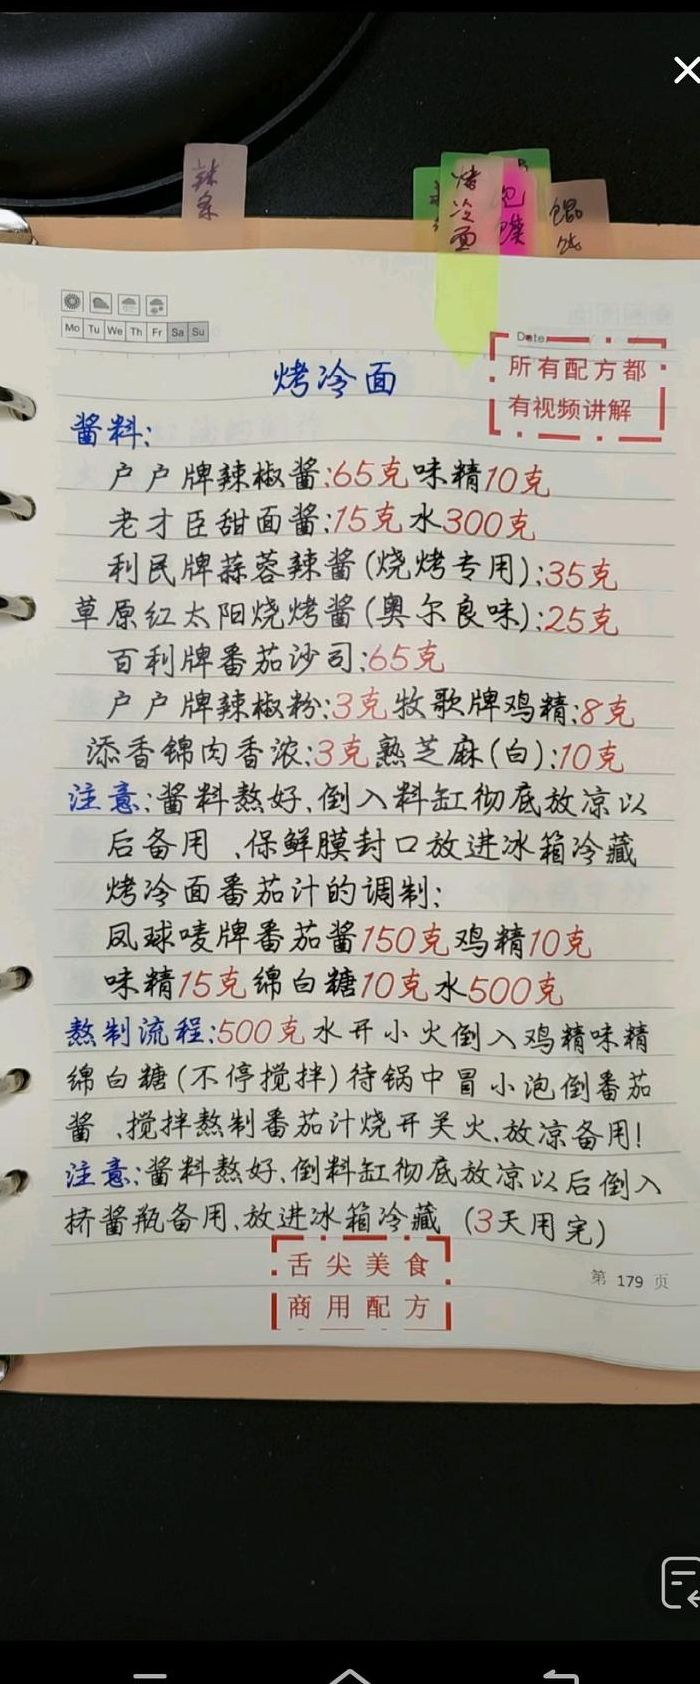 辣条
烤冷面
Mo Tu We Th Fr Sa Su
Date:
所有配方都
有视频讲解
烤冷面
酱料:
户户牌辣椒酱:65克味精10克
老才臣甜面酱:15克水300克
利民牌蒜蓉辣酱(烧烤专用):35克
草原红太阳烧烤酱(奥尔良味):25克
百利牌番茄沙司:65克
户户牌辣椒粉:3克牧歌牌鸡精:8克
添香锦肉香浓:3克熟芝麻(白):10克
注意:酱料熬好、倒入料缸彻底放凉以
后备用、保鲜膜封口放进冰箱冷藏
烤冷面番茄汁的调制:
凤球唛牌番茄酱150克鸡精10克
味精15克绵白糖10克水500克
熬制流程:500克水开小火倒入鸡精味精
绵白糖(不停搅拌)待锅中冒小泡倒番茄
酱、搅拌熬制番茄汁烧开关火、放凉备用!
注意:酱料熬好、倒料缸彻底放凉以后倒入
挤酱瓶备用、放进冰箱冷藏(3天用完)
舌尖美食
商用配方
第 179 页